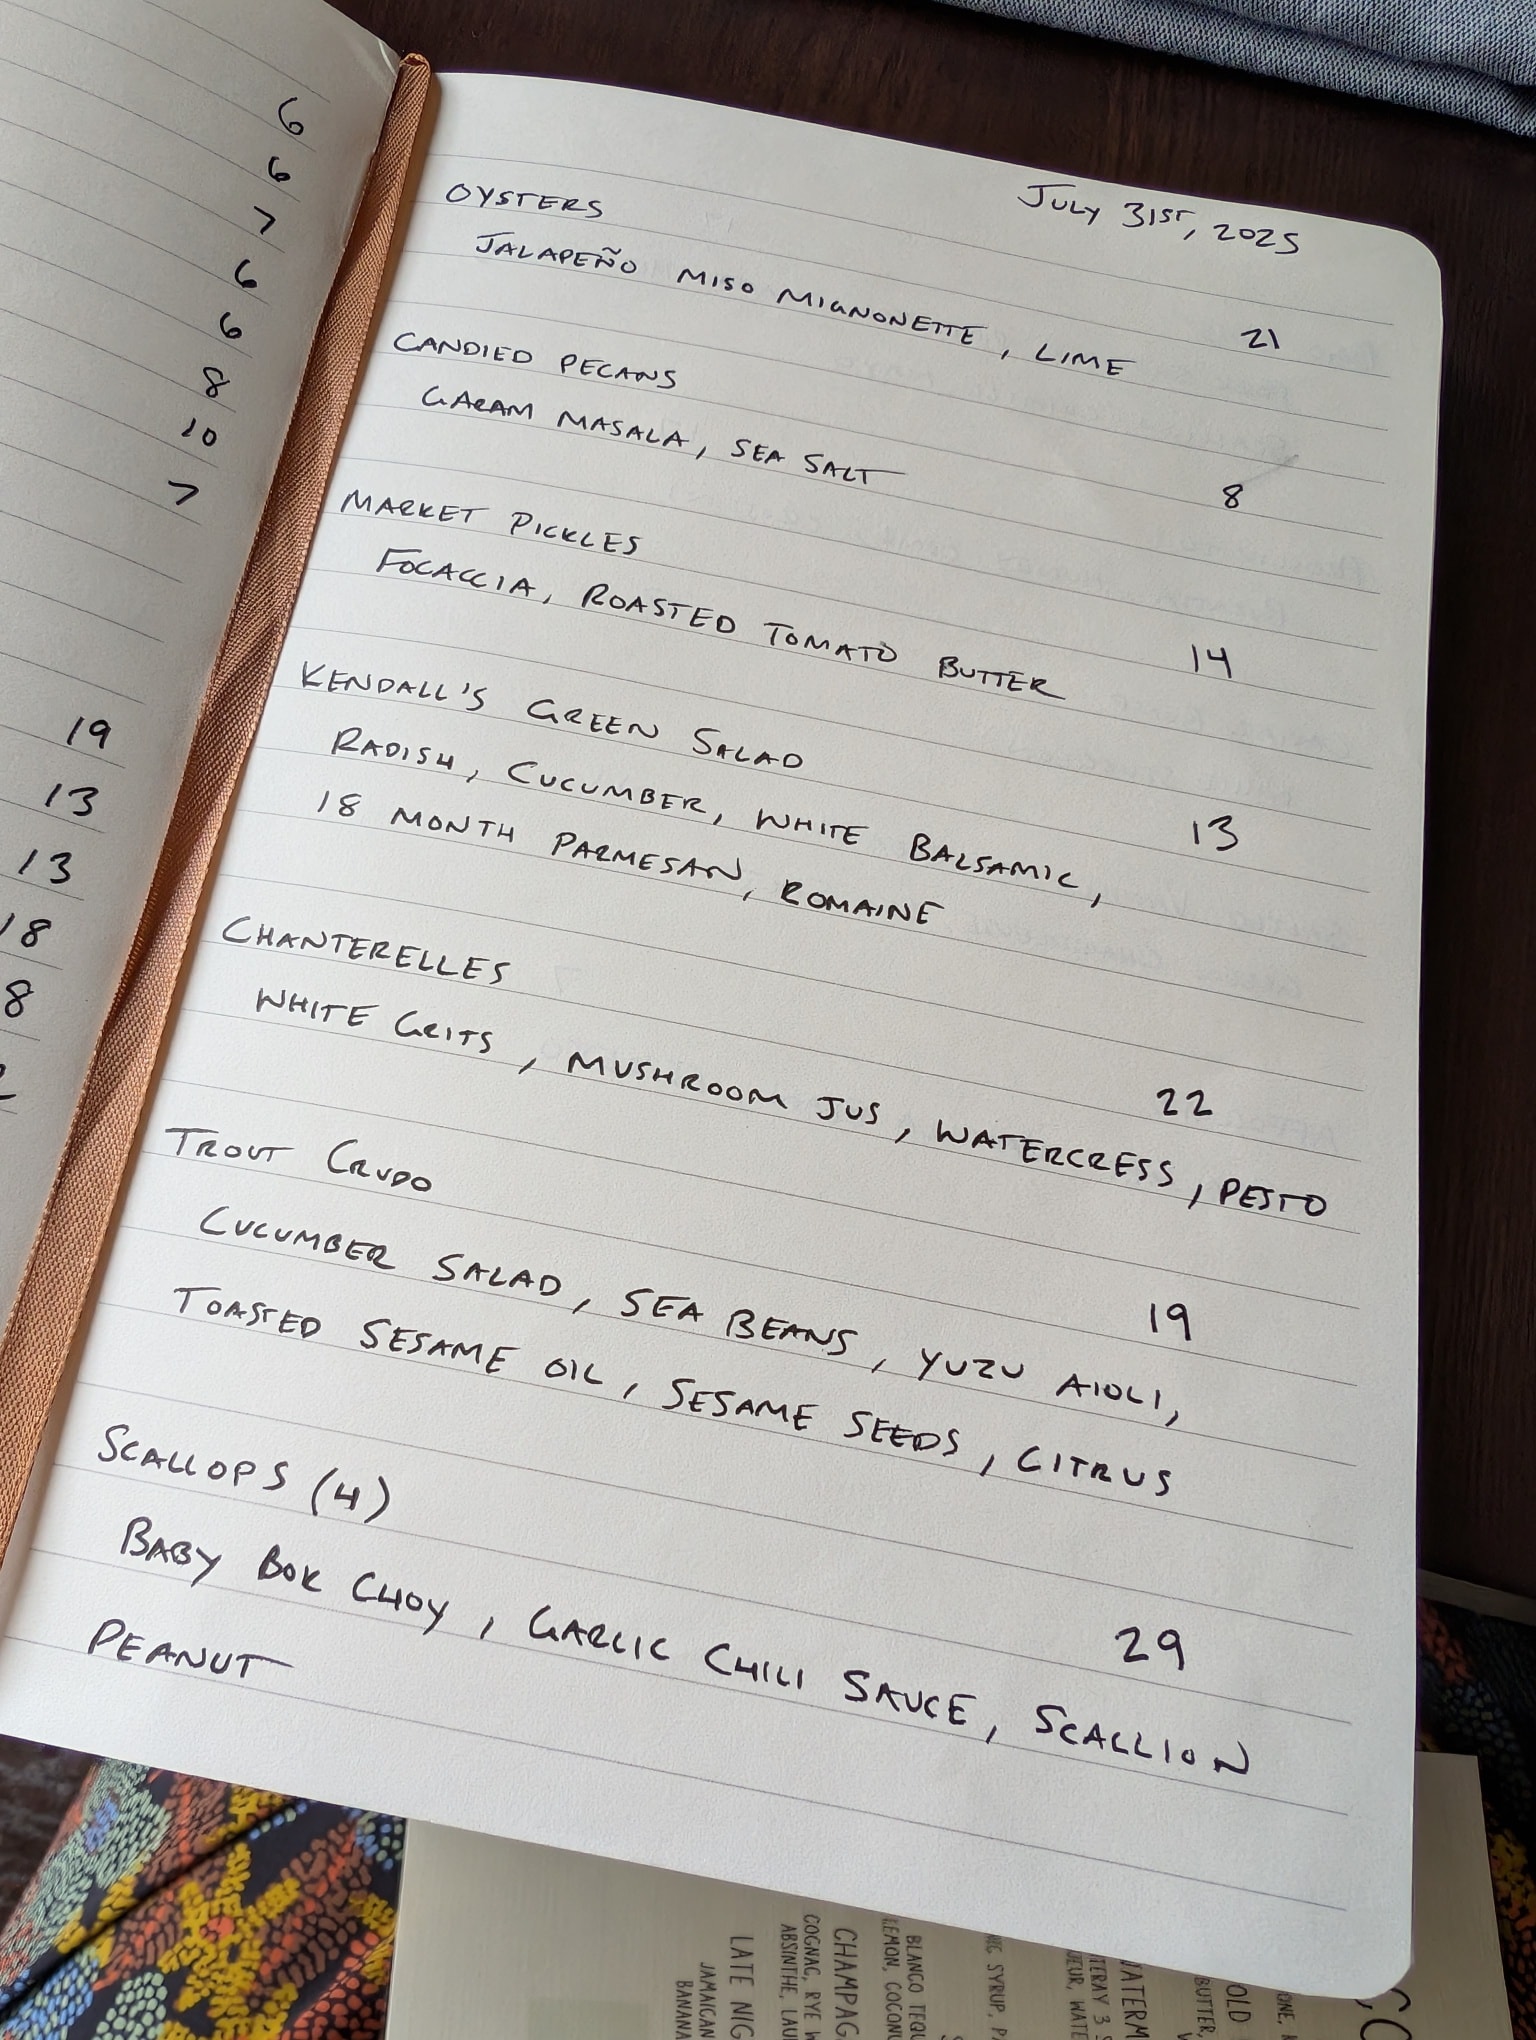 6
6
7
6
6
8
10
7
19
13
13
18
8
JULY 31ST, 2025
OYSTERS
JALAPEÑO MISO MIGNONETTE, LIME 21
CANDIED PECANS
GARAM MASALA, SEA SALT 8
MARKET PICKLES
FOCACCIA, ROASTED TOMATO BUTTER 14
KENDALL'S GREEN SALAD
RADISH, CUCUMBER, WHITE BALSAMIC, 13
18 MONTH PARMESAN, ROMAINE
CHANTERELLES
WHITE GRITS, MUSHROOM JUS, WATERCRESS, PESTO 22
TROUT CRUDO
CUCUMBER SALAD, SEA BEANS, YUZU AIOLI, 19
TOASTED SESAME OIL, SESAME SEEDS, CITRUS
SCALLOPS (4)
BABY BOK CHOY, GARLIC CHILI SAUCE, SCALLION 29
PEANUT
OLD
BUTTER,
WATERM
SYRUP,
BLANCO TEQU
LEMON, COCONU
CHAMPAG
COGNAC, RYE
ABSINTHE, LAU
LATE NIG
JAMAICAN
BANANA